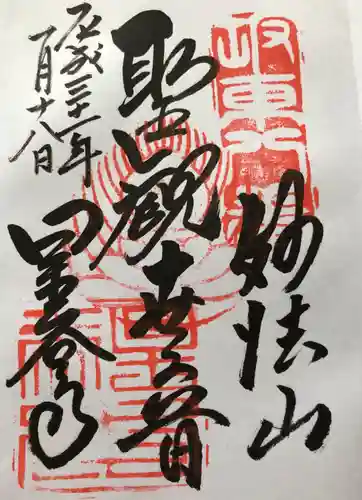 妙法山
聖観世音
星谷寺
平成三十一年
一月十八日
坂東八番